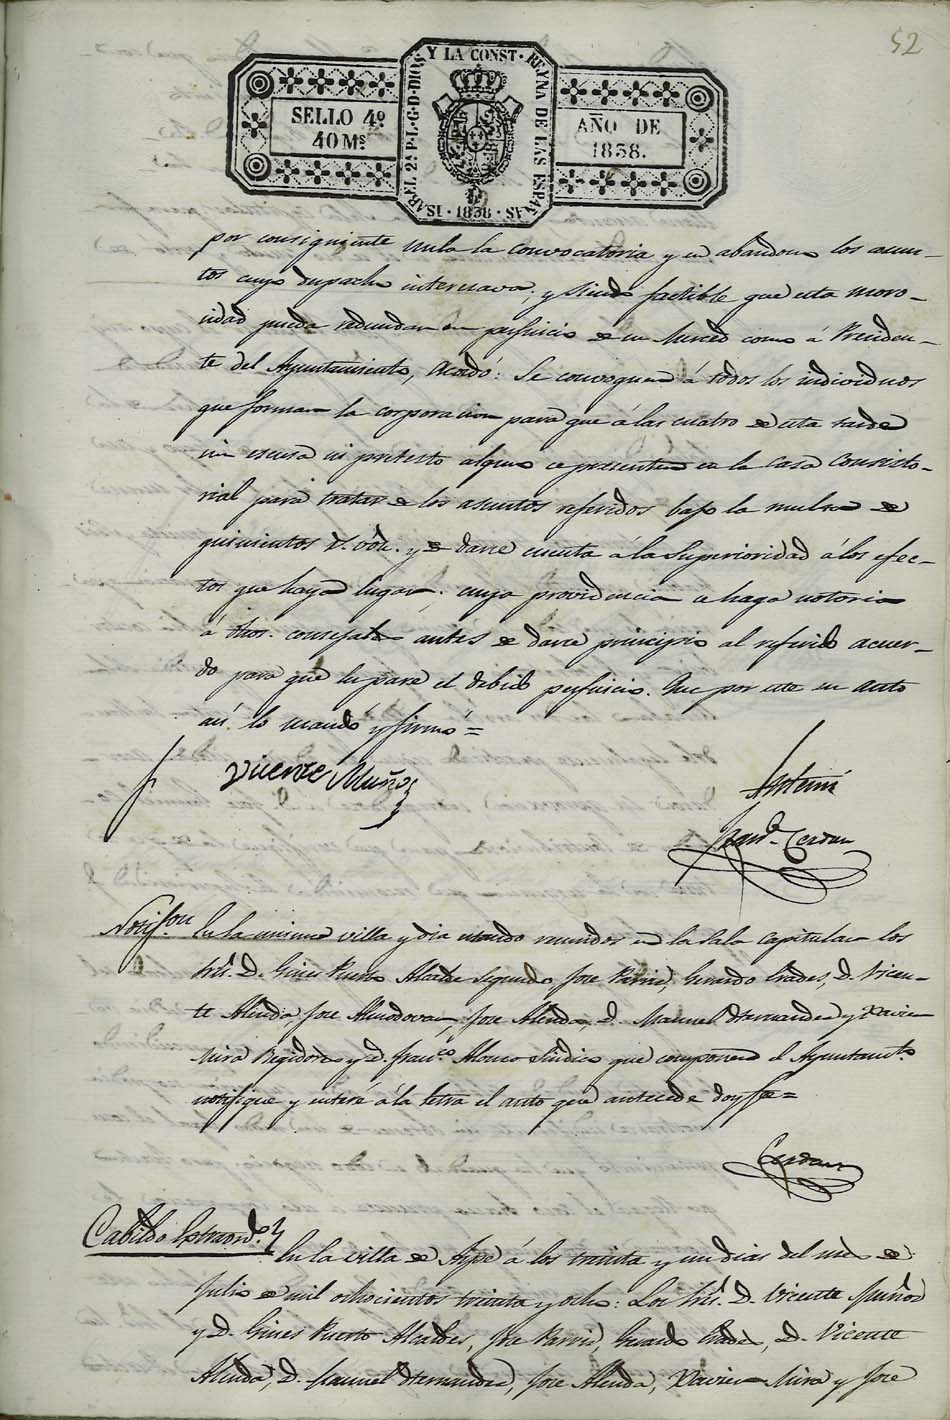 52
SELLO 4º
40 Mˢ
ISABEL 2ª P. L. G. D. DIOS Y LA CONST. REYNA DE LAS ESPAÑAS · 1838 ·
AÑO DE
1838.
por consiguiente nula la convocatoria y en abandono los asun-
tos cuyo despacho interesava; y siendo factible que esta moro-
sidad pueda redundar en perjuicio de su Merced como á Presiden-
te del Ayuntamiento, Acordó: Se convoquen á todos los individuos
que forman la corporacion para que á las cuatro de esta tarde
sin escusa ni pretesto alguno se presenten en la Casa Consisto-
rial para tratar de los asuntos referidos bajo la multa de
quinientos rˢ. vón. y de darse cuenta á la Superioridad á los efec-
tos que haya lugar: cuya providencia se haga notoria
á dhos. concejales antes de darse principio al referido acuer-
do para que les pare el debido perjuicio. Que por este su auto
así lo mandó y firmó=
Vicente Muñoz
Antemi
Cerdan
Notifⁿ En la misma villa y dia estando reunidos en la Sala Capitular los
Srēs. D. Gines Puerto Alcalde Segundo, Jose Gerardo Prades, D. Vicen-
te Alenda, Jose Almodovar, Jose Alenda, D. Manuel Hernandez y Xavier
Mira Regidores y D. Franᶜᵒ. Alonso Sindico que componen el Ayuntamtᵒ.
notifique y enteré á la letra el auto que antecede doy fee=
Cerdan
Cabildo Estraordᵒ.
En la villa de Aspe á los treinta y un dias del mes de
Julio de mil ochocientos treinta y ocho: Los Srēs. D. Vicente Muñoz
y D. Gines Puerto Alcaldes, Jose Gerardo Prades, D. Vicente
Alenda, D. Manuel Hernandez, Jose Alenda, Xavier Mira y Jose